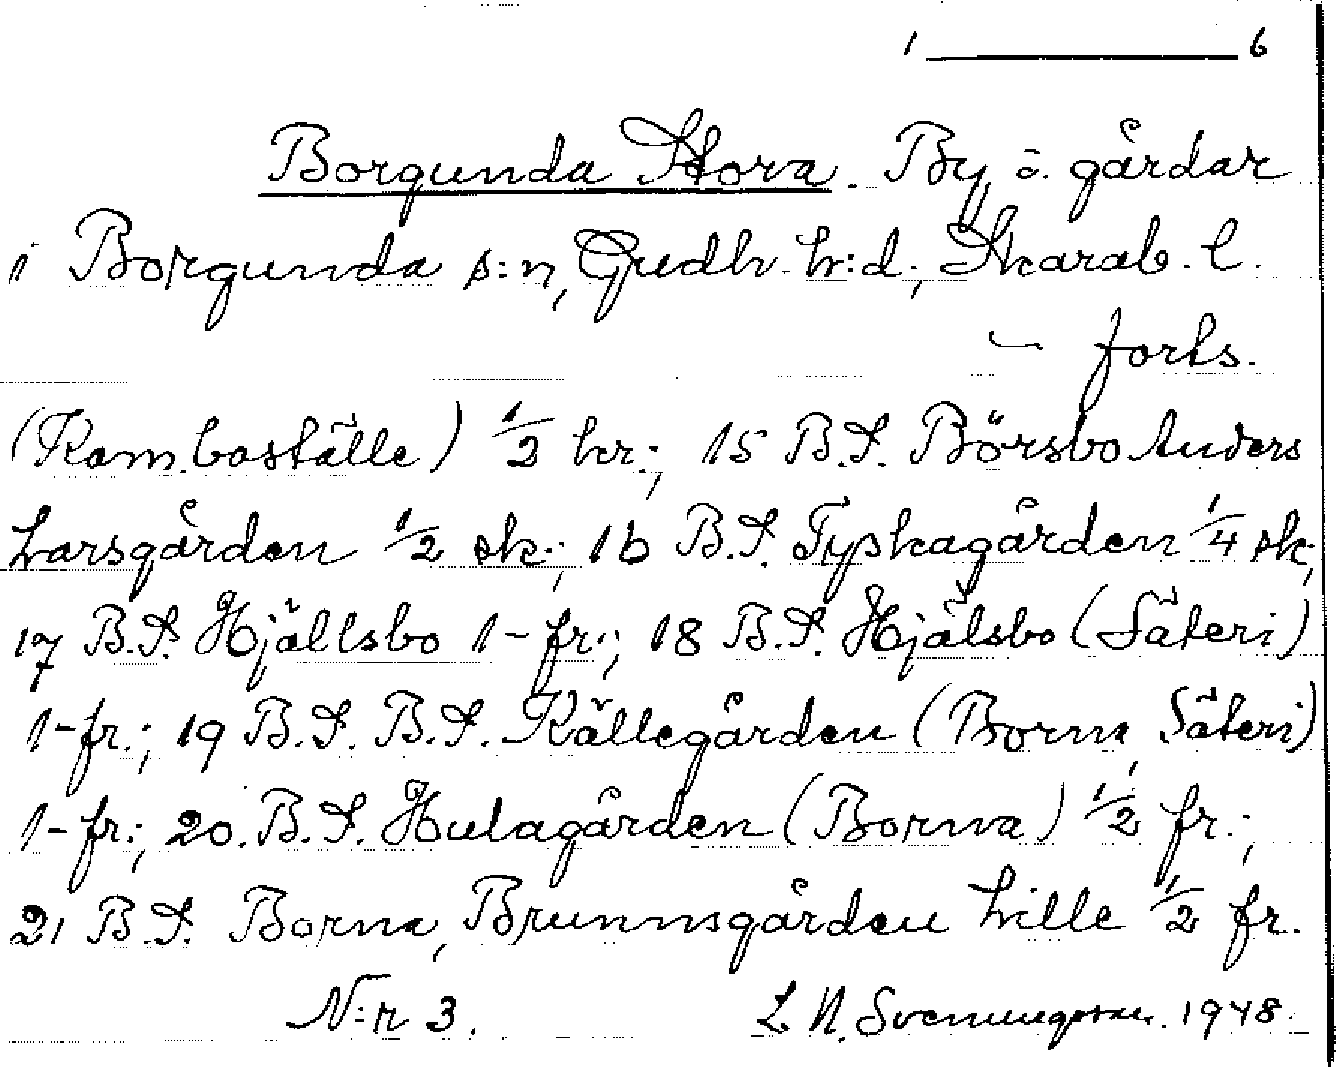 1 ——— 6
Borgunda Stora. By o. gårdar
i Borgunda s:n, Gudh. h:d., Skarab. l.
— forts.
(Kom.boställe) 1/2 kr.; 15 B.S. Börsbo Anders
Larsgården 1/2 sk.; 16 B.S. Tyskagården 1/4 sk.;
17 B.S. Hjällsbo 1-fr.; 18 B.S. Hjälsbo (Säteri)
1-fr.; 19 B.S. B.S. Källegården (Borna, Säteri)
1-fr.; 20. B.S. Hulagården (Borna) 1/2 fr.;
21 B.S. Borna, Brunnsgården Lille 1/2 fr.
N:r 3. L N. Svenungsson. 1948.